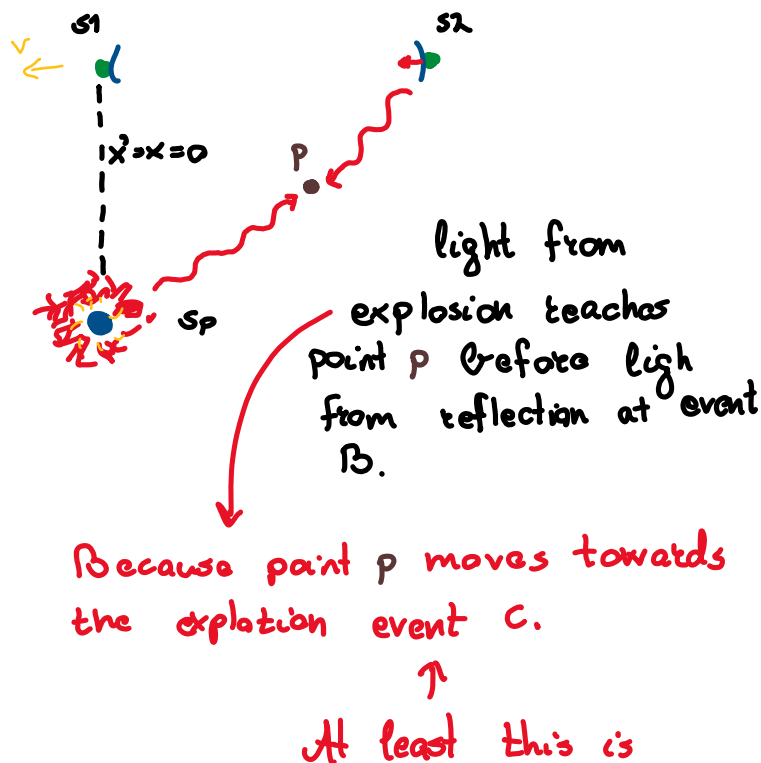 S1
S2
v
x'=x=0
P
Sp
light from
explosion reaches
point P before ligh
from reflection at event
B.
Because point P moves towards
the explation event C.
At least this is